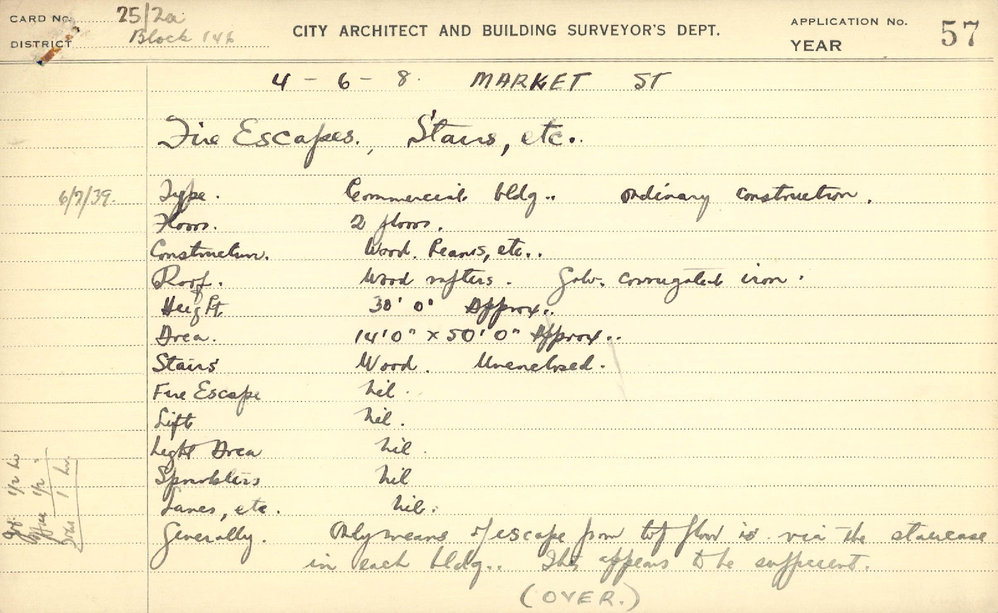 CARD No. 25/2a
DISTRICT Block 142
CITY ARCHITECT AND BUILDING SURVEYOR'S DEPT.
APPLICATION No.
YEAR
57
4 - 6 - 8. MARKET ST
Fire Escapes., Stairs, etc..
6/7/39. Type. Commercial bldg.. Ordinary construction.
Floors. 2 floors.
Construction. Wood. Beams, etc..
Roof. Wood rafters. Galv. corrugated iron.
Height 30' 0" Approx..
Area. 14'0" x 50'0" Approx..
Stairs Wood. Unenclosed.
Fire Escape nil.
Lift nil.
Light Area nil.
Sprinklers nil
Lanes, etc. nil.
Generally. Only means of escape from top floor is via the staircase
in each bldg.. This appears to be sufficient.
(OVER.)
1/2 hr
Office 1/2 "
1 hr